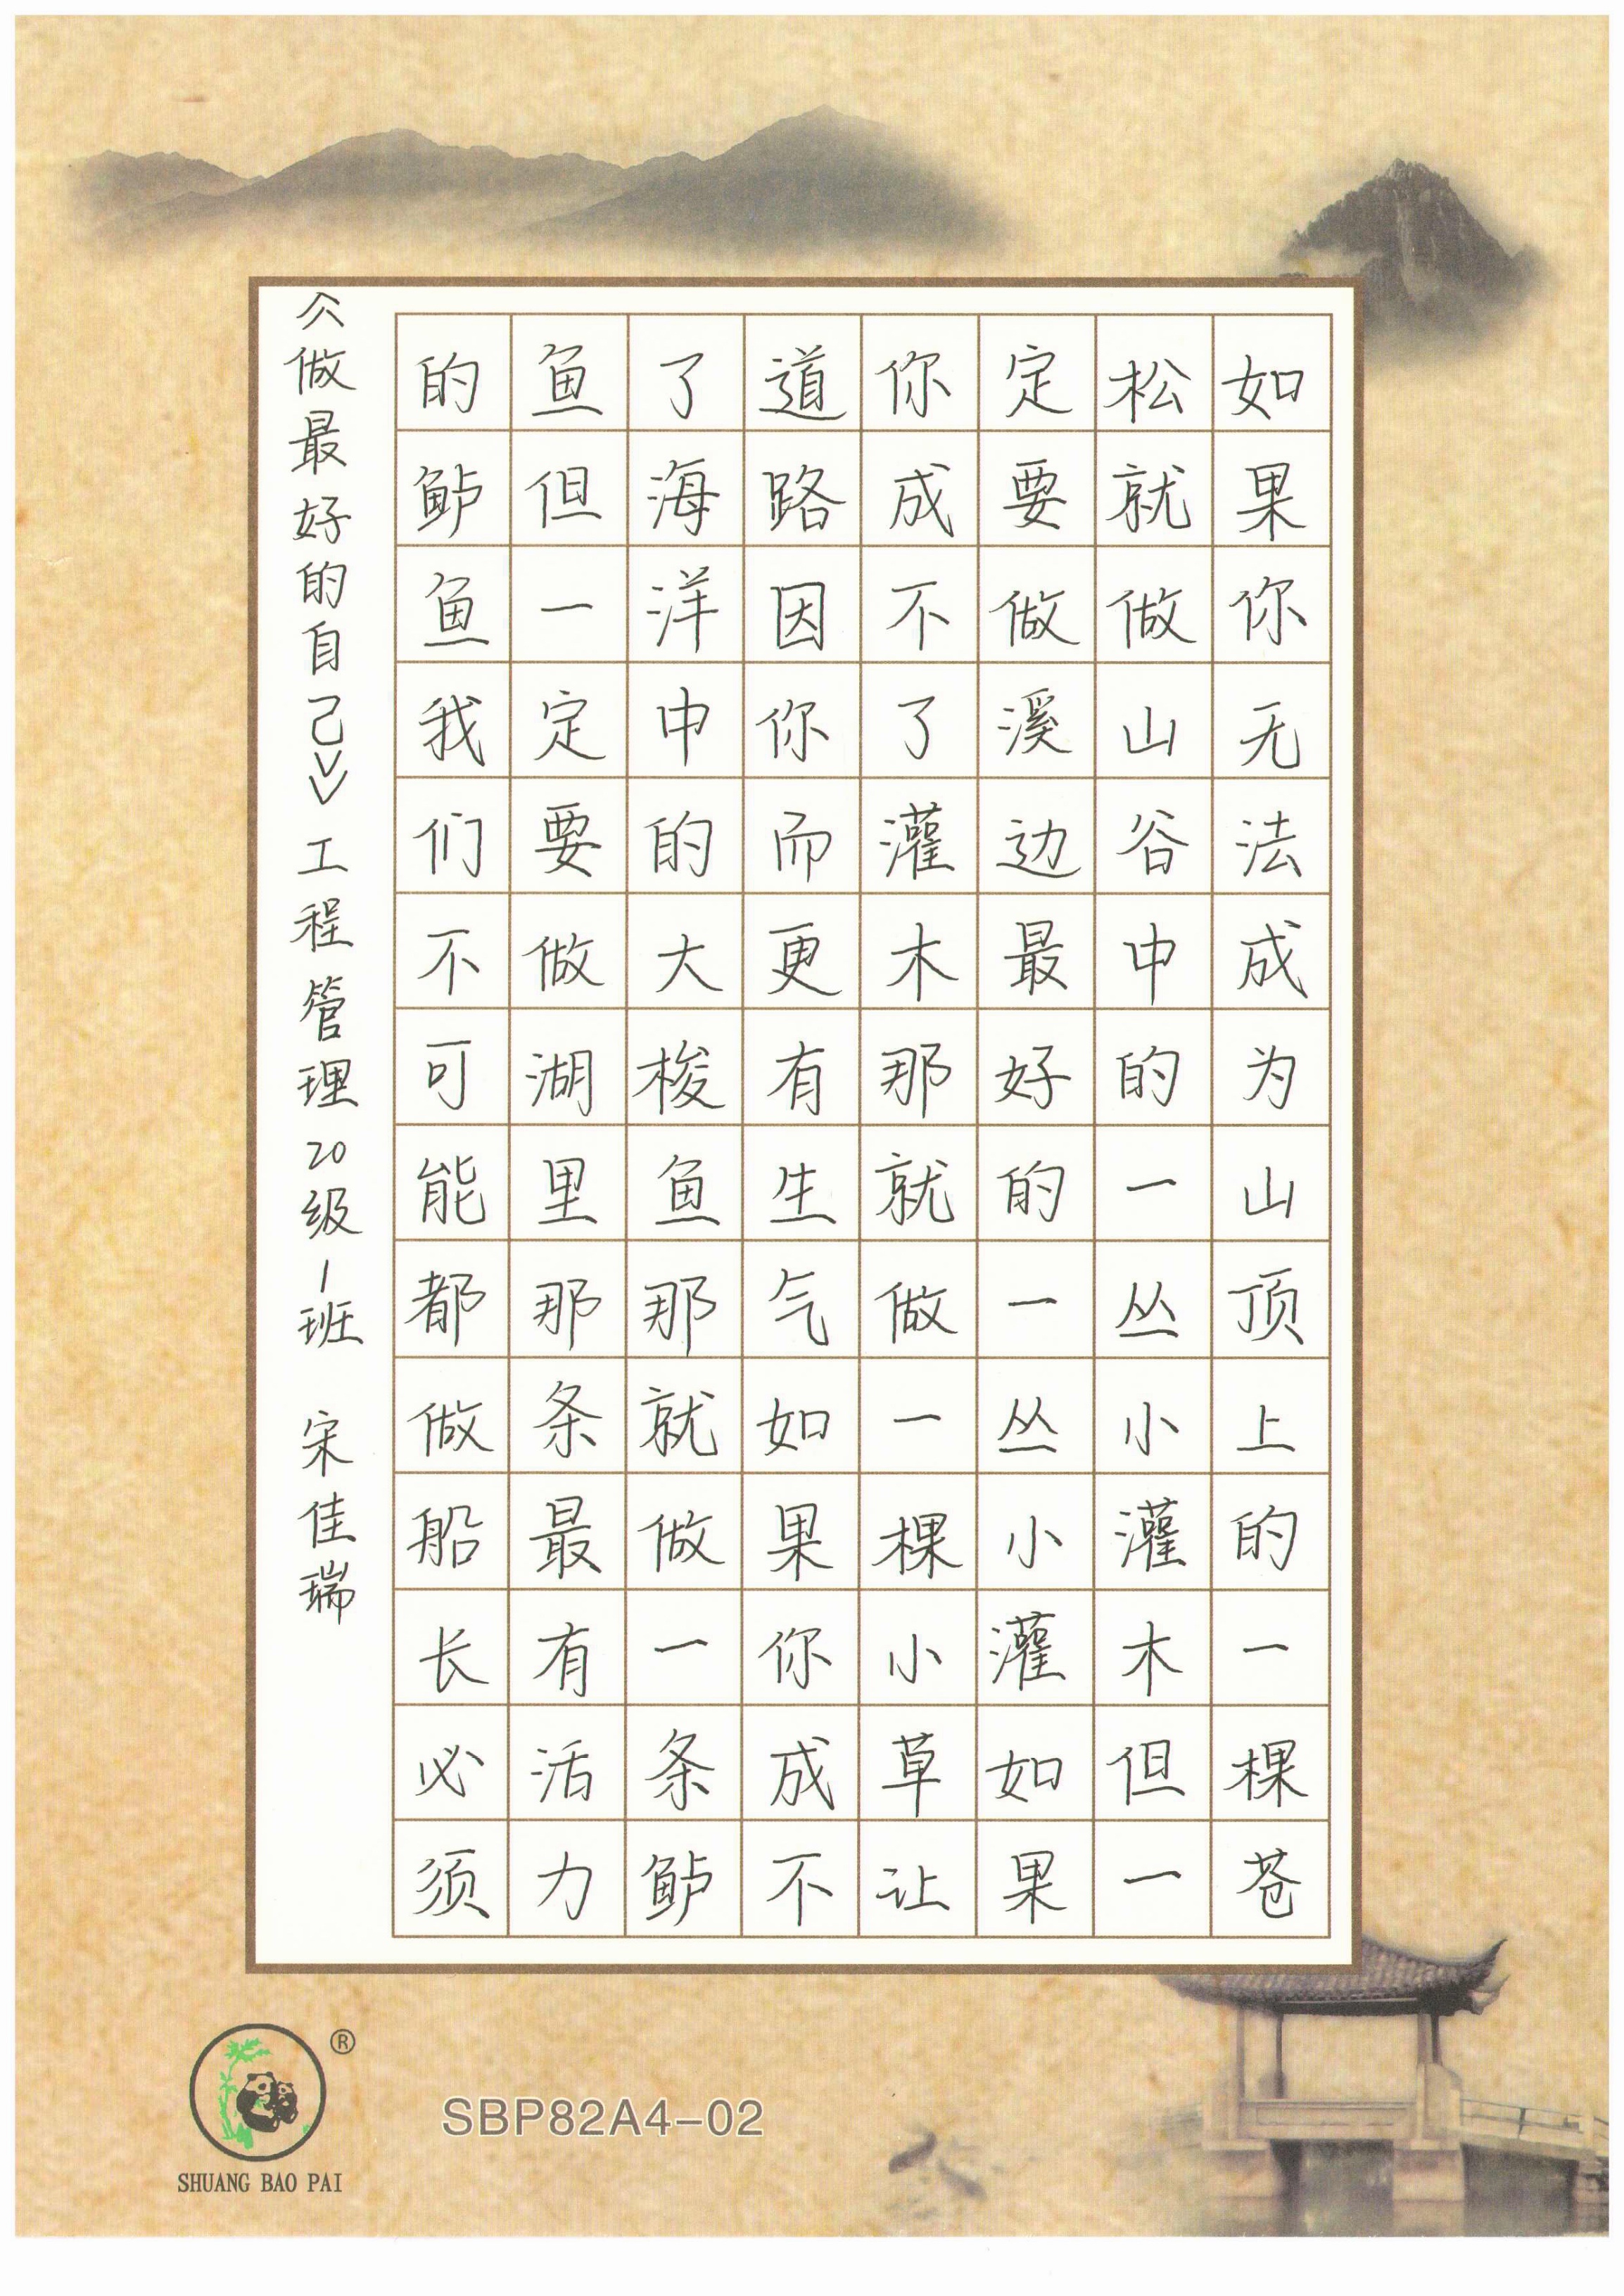 如果你无法成为山顶上的一棵苍
松就做山谷中的一丛小灌木但一
定要做溪边最好的一丛小灌木如果
你成不了灌木那就做一棵小草让
道路因你而更有生气如果你成不
了海洋中的大梭鱼那就做一条鲈
鱼但一定要做湖里那条最有活力
的鲈鱼我们不可能都做船长必须
《做最好的自己》工程管理20级1班 宋佳瑞
®
SHUANG BAO PAI
SBP82A4-02